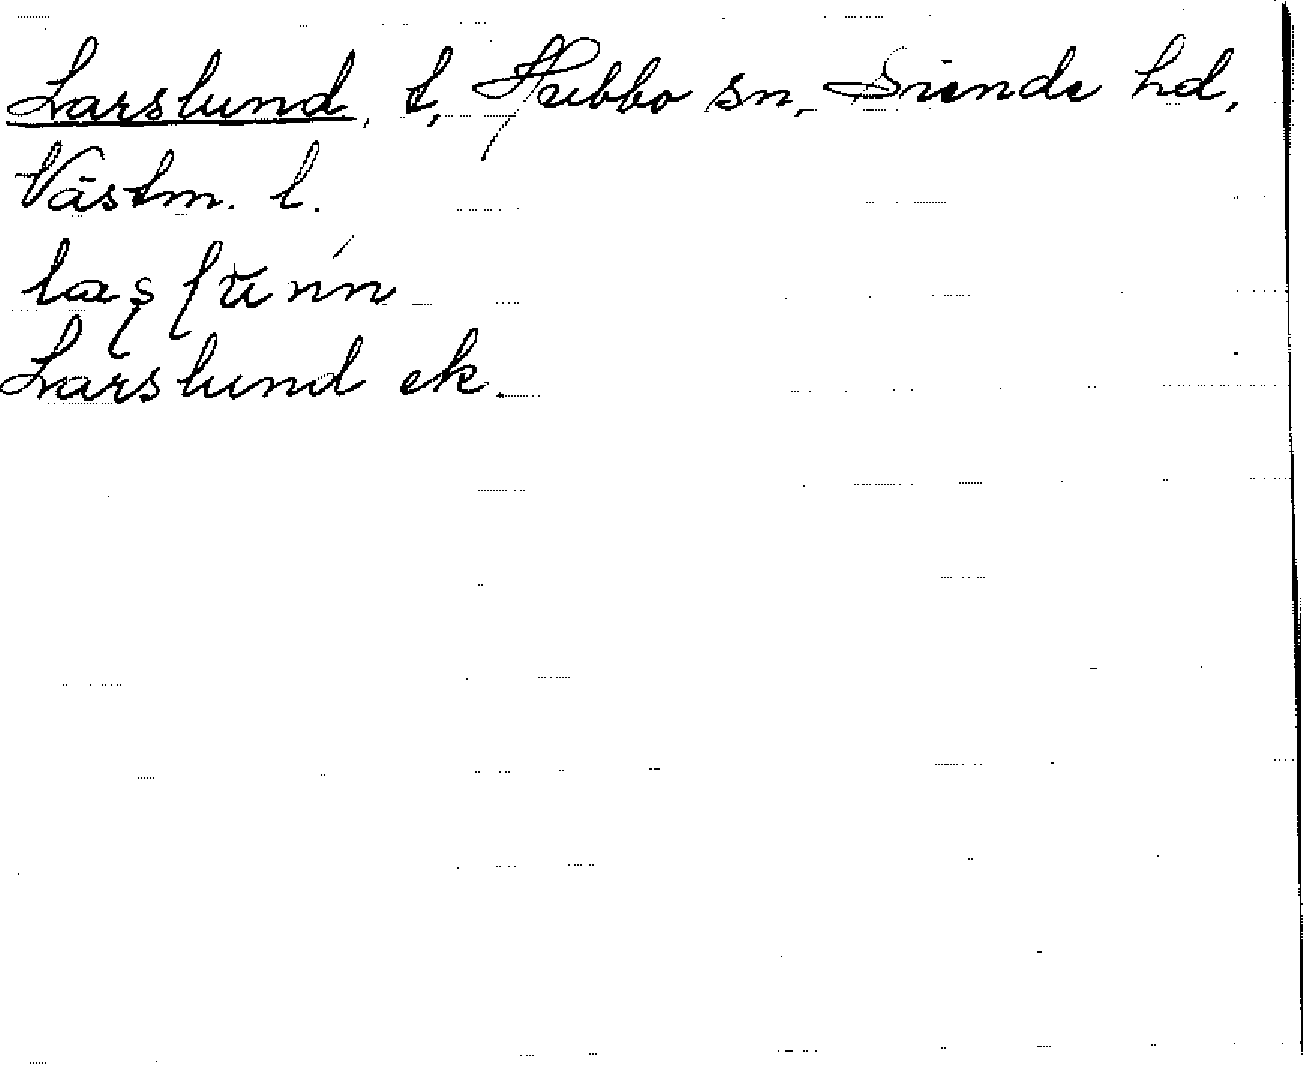 Larslund, t, Hubbo sn, Siende hd,
Västm. l.
Larslund ek.